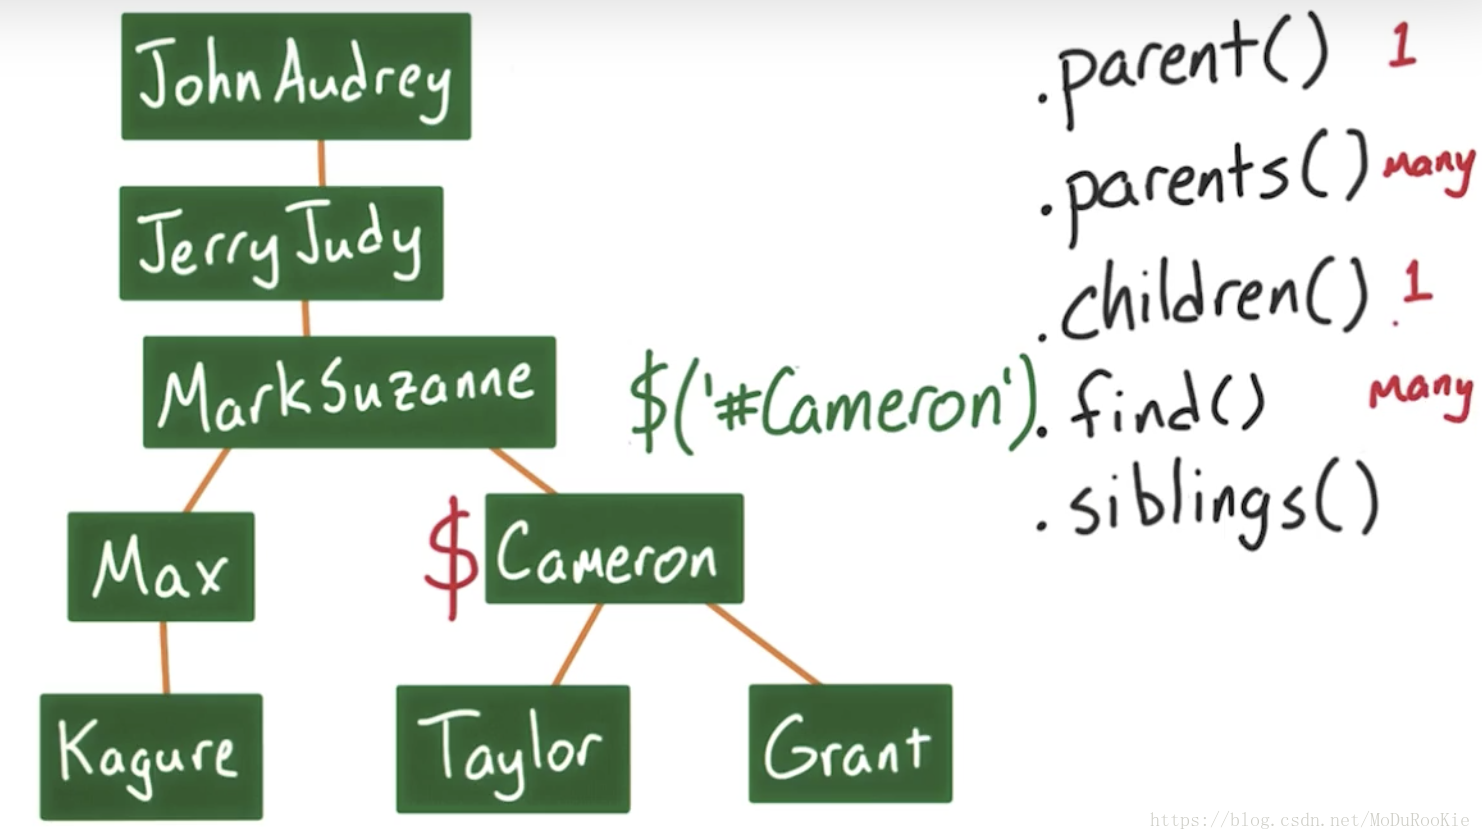 John Audrey
Jerry Judy
Mark Suzanne
Max
$ Cameron
Kagure
Taylor
Grant
$('#Cameron')
.parent() 1
.parents() many
.children() 1
.find() many
.siblings()
https://blog.csdn.net/MoDuRooKie